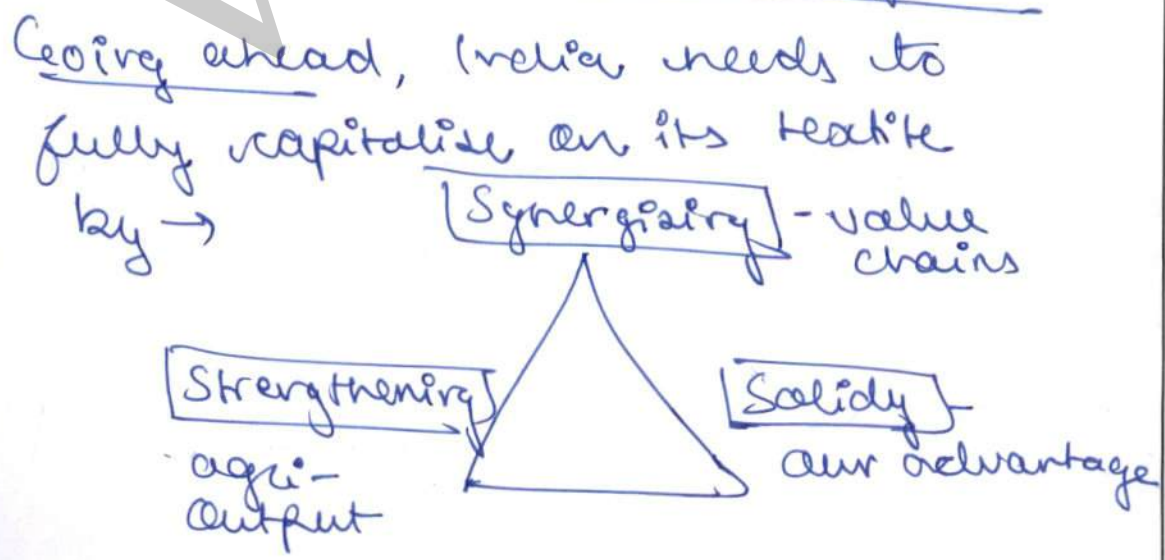 Going ahead, India needs to
fully capitalise on its textile
by → Synergising - value
chains
Strengthening
agri-
output
Solidy -
our advantage